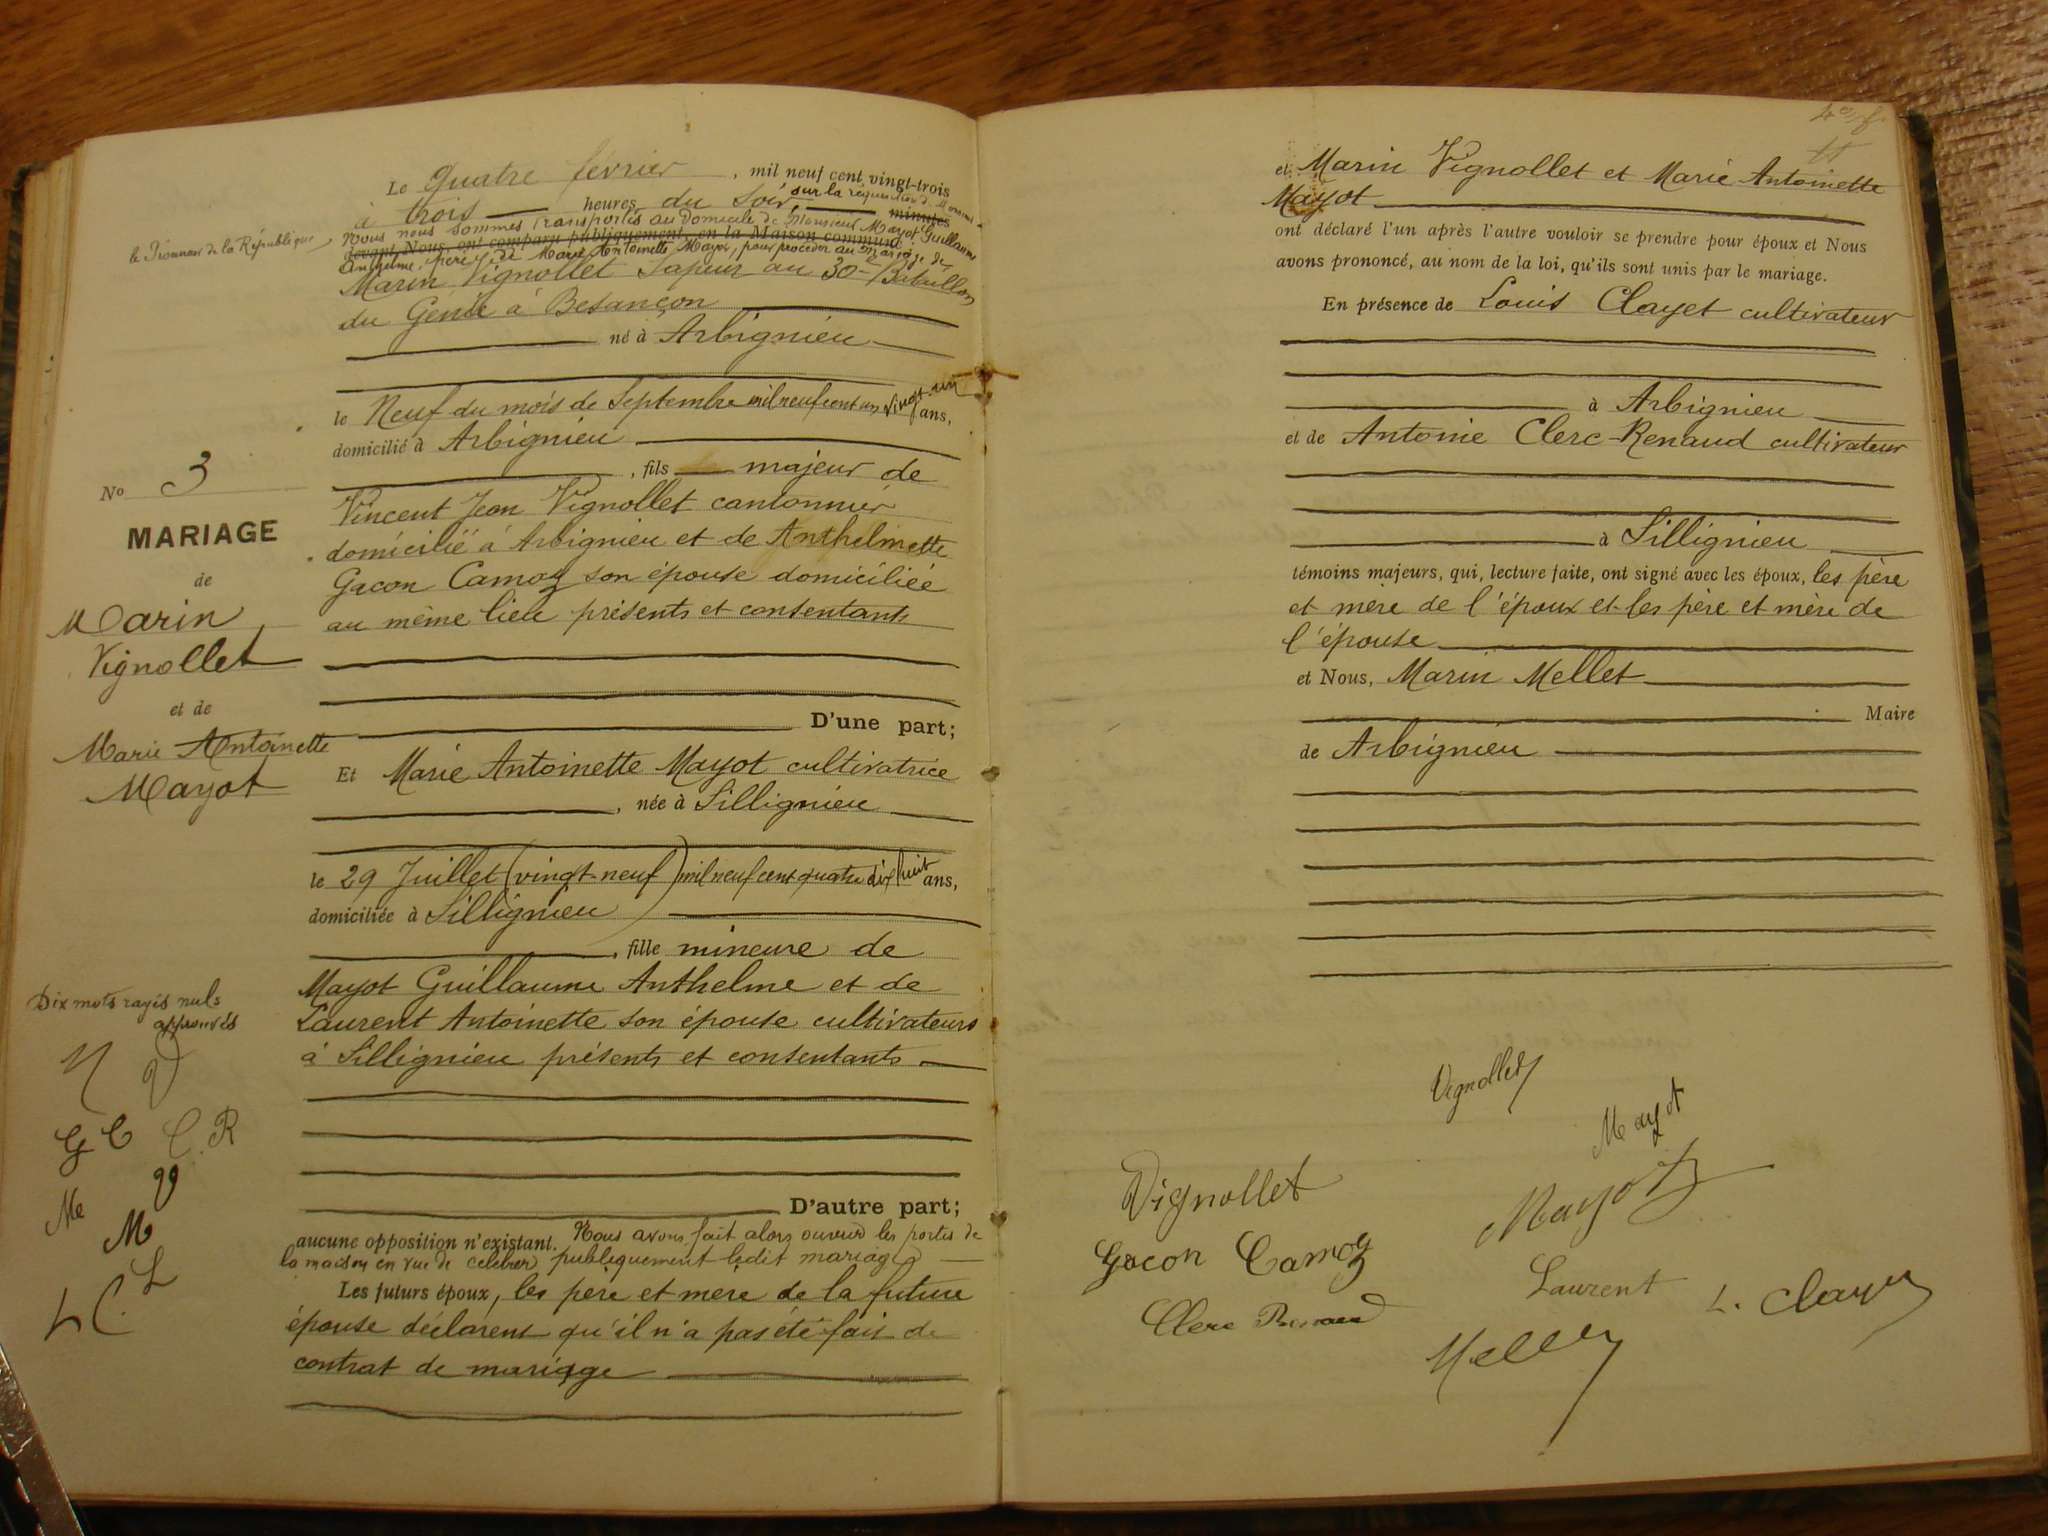 Le Quatre février, mil neuf cent vingt-trois
à trois heures du Soir, sur la réquisition de Monsieur minutes
le Procureur de la République
Nous nous sommes transportés au Domicile de Monsieur Mayot Guillaume
devant Nous, ont comparu publiquement, en la Maison commune
Anthelme père de Marie Antoinette Mayot, pour procéder au mariage de
Marin Vignollet Sapeur au 30e Bataillon
du Génie à Besançon
né à Arbignieu
le Neuf du mois de Septembre mil neuf cent un vingt-un ans,
domicilié à Arbignieu
, fils majeur de
Vincent Jean Vignollet cantonnier
domicilié à Arbignieu et de Anthelmette
Gacon Camoz son épouse domiciliée
au même lieu présents et consentants
D'une part;
Et Marie Antoinette Mayot cultivatrice
, née à Sillignieu
le 29 Juillet (vingt-neuf) mil neuf cent quatre dix huit ans,
domiciliée à Sillignieu
, fille mineure de
Mayot Guillaume Anthelme et de
Laurent Antoinette son épouse cultivateurs
à Sillignieu présents et consentants
D'autre part;
aucune opposition n'existant. Nous avons fait alors ouvrir les portes de
la maison en vue de célébrer publiquement ledit mariage
Les futurs époux, les père et mère de la future
épouse déclarent qu'il n'a pas été fait de
contrat de mariage
No 3
MARIAGE
de
Marin
Vignollet
et de
Marie Antoinette
Mayot
Dix mots rayés nuls
approuvés
G C C. R
Me
M
L
L C.
et Marin Vignollet et Marie Antoinette
Mayot
ont déclaré l'un après l'autre vouloir se prendre pour époux et Nous
avons prononcé, au nom de la loi, qu'ils sont unis par le mariage.
En présence de Louis Clayet cultivateur
à Arbignieu
et de Antonie Clerc-Renaud cultivateur
à Sillignieu
témoins majeurs, qui, lecture faite, ont signé avec les époux, les père
et mère de l'époux et les père et mère de
l'épouse
et Nous, Marin Mellet
Maire
de Arbignieu
Vignollet
Mayot
Vignollet
Mayot
Gacon Camoz
Laurent
L. Clayet
Clerc Renaud
Mellet